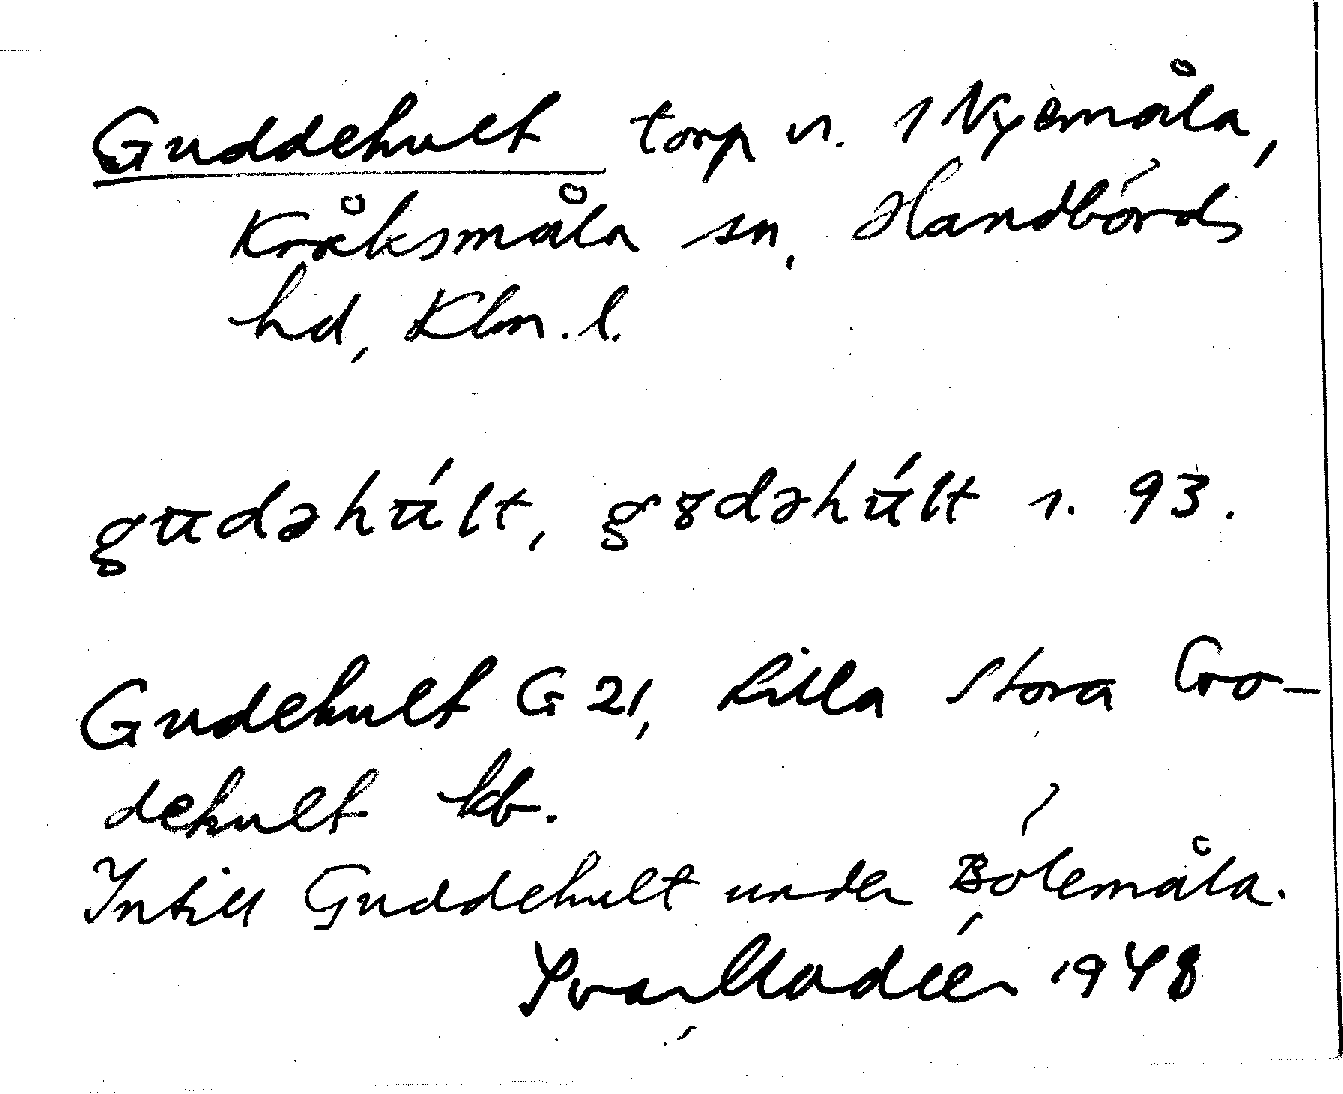 Guddehult torp u. 1 Nyemåla,
Kråksmåla sn, Handbörds
hd, Klm. l.
gudəhúlt, gɤdəhúlt s. 93.
Gudehult G 21, Lilla Stora Go-
dehult kb.
Intill Guddehult under Bölemåla.
Ivar Modéer 1948